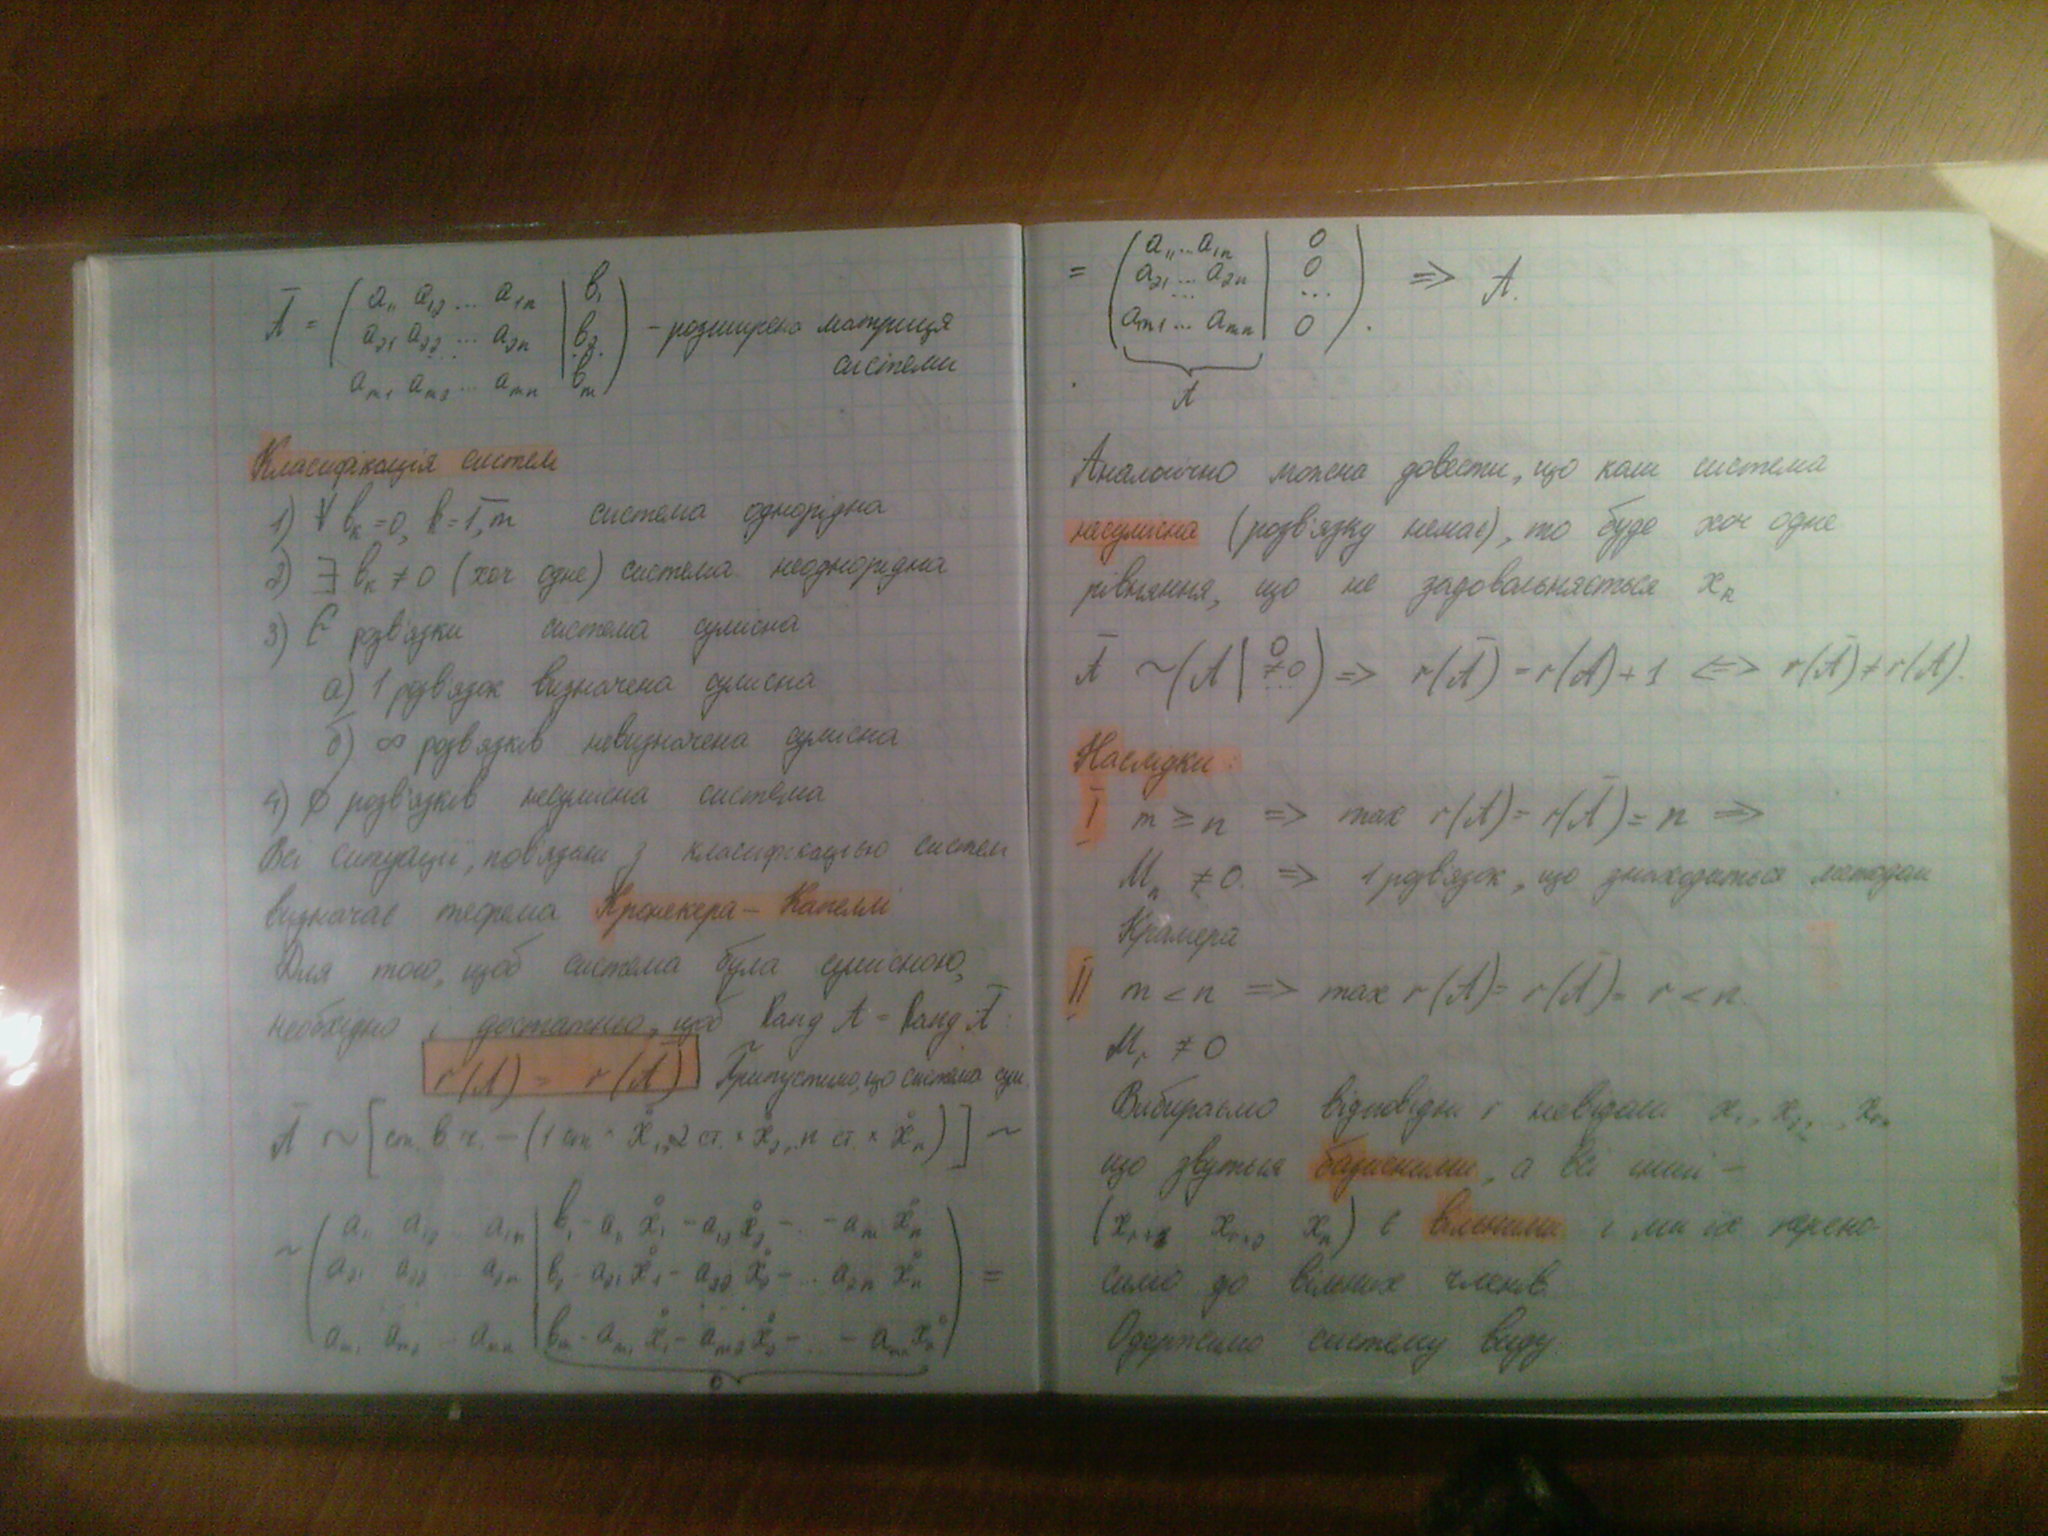 Ā = ( a₁₁ a₁₂ ... a₁ₙ | b₁
a₂₁ a₂₂ ... a₂ₙ | b₂ ) – розширена матриця
системи
aₘ₁ aₘ₂ ... aₘₙ | bₘ
Класифікація систем
1) ∀ bₖ = 0, k = 1,m система однорідна
2) ∃ bₖ ≠ 0 (хоч одне) система неоднорідна
3) Є розв'язки система сумісна
а) 1 розв'язок визначена сумісна
б) ∞ розв'язків невизначена сумісна
4) ∅ розв'язків несумісна система
Всі ситуації, пов'язані з класифікацією систем
визначає теорема Кронекера – Капеллі
Для того, щоб система була сумісною,
необхідно і достатньо, щоб Rang A = Rang Ā
r(A) = r(Ā) Припустимо, що система сум.
Ā ~ [ст. в. ч. – (1 ст. × x̊₁, 2 ст. × x̊₂, n ст. × x̊ₙ)] ~
~ ( a₁₁ a₁₂ ... a₁ₙ | b₁ - a₁₁ x̊₁ - a₁₂ x̊₂ - ... - a₁ₙ x̊ₙ
a₂₁ a₂₂ ... a₂ₙ | b₂ - a₂₁ x̊₁ - a₂₂ x̊₂ - ... a₂ₙ x̊ₙ ) =
aₘ₁ aₘ₂ ... aₘₙ | bₘ - aₘ₁ x̊₁ - aₘ₂ x̊₂ - ... - aₘₙ x̊ₙ
0
= ( a₁₁ ... a₁ₙ | 0
a₂₁ ... a₂ₙ | 0 ) ⇒ A.
... | ...
aₘ₁ ... aₘₙ | 0 .
A
Аналогічно можна довести, що коли система
несумісна (розв'язку немає), то буде хоч одне
рівняння, що не задовольняється xₙ
Ā ~ (A | 0 ≠0 ...) ⇒ r(Ā) = r(A) + 1 ⇔ r(Ā) ≠ r(A).
Наслідки:
I m ≥ n ⇒ max r(A) = r(Ā) = n ⇒
Mₙ ≠ 0. ⇒ 1 розв'язок, що знаходиться методом
Крамера
II m < n ⇒ max r(A) = r(Ā) = r < n.
Mᵣ ≠ 0
Вибираємо відповідні r невідомі x₁, x₂, ..., xᵣ,
що звуться базисними, а всі інші –
(xᵣ₊₁ xᵣ₊₂ xₙ) є вільними і ми їх перено
симо до вільних членів.
Одержимо систему виду